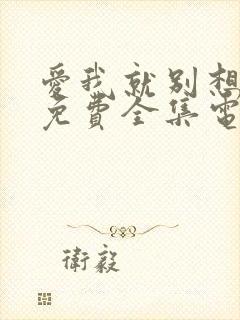 愛我就別想
免費全集電
衛毅